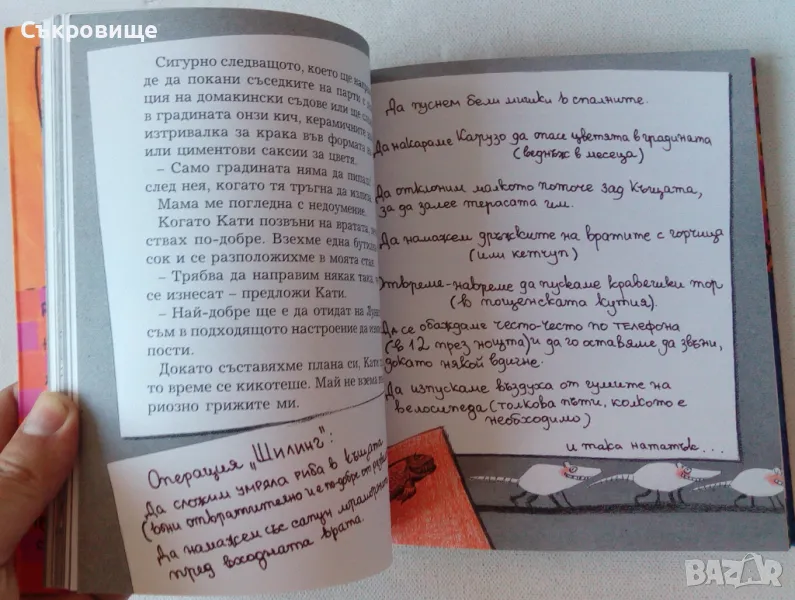 Съкровище
Сигурно следващото, което ще
де да покани съседките на парти с
ция на домакински съдове или ще
в градината онзи кич, керамичните
изтривалка за крака във формата на
или циментови саксии за цветя.
– Само градината няма да
след нея, когато тя тръгна да
Мама ме погледна с недоумение.
Когато Кати позвъни на вратата,
ствах по-добре. Взехме една
сок и се разположихме в моята
– Трябва да направим някак така,
се изнесат – предложи Кати.
– Най-добре ще е да отидат на
съм в подходящото настроение да
пости.
Докато съставяхме плана си, Кати
то време се кикотеше. Май не
риозно грижите ми.
Операция „Шилинг":
Да сложим умряла риба в къщата
(вони отвратително и е по-добре от
Да намажем със сапун мрамора
пред входната врата.
Да пуснем бели мишки в спалните.
Да накараме Карузо да опасе цветята в градината
(веднъж в месеца)
Да отклоним малкото поточе зад къщата,
за да залее терасата им.
Да намажем дръжките на вратите с горчица
(или кетчуп)
Отвреме-навреме да пускаме кравешки тор
(в пощенската кутия).
Да се обаждаме често-често по телефона
(в 12 през нощта) и да го оставяме да звъни,
докато някой вдигне.
Да изпускаме въздуха от гумите на
велосипеда (толкова пъти, колкото е
необходимо)
и така нататък...
BAZAR